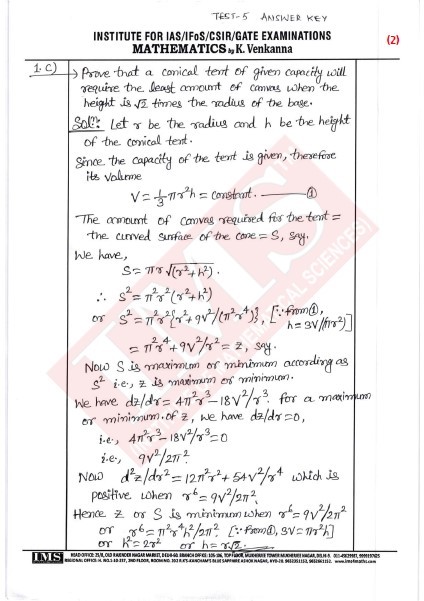 TEST-5 ANSWER KEY
INSTITUTE FOR IAS/IFoS/CSIR/GATE EXAMINATIONS
MATHEMATICS by K. Venkanna
(2)
1. C) → Prove that a conical tent of given capacity will
require the least amount of canvas when the
height is √2 times the radius of the base.
Solⁿ: Let r be the radius and h be the height
of the conical tent.
Since the capacity of the tent is given, therefore
its volume
V = 1/3 πr²h = constant. ——— ①
The amount of canvas required for the tent =
the curved surface of the cone = S, say.
We have,
S = πr √(r²+h²).
∴ S² = π²r²(r²+h²)
or S² = π²r²{r²+9V²/(π²r⁴)}, [∵ from ①,
h = 3V/(πr²)]
= π²r⁴+9V²/r² = z, say.
Now S is maximum or minimum according as
S² i.e., z is maximum or minimum.
We have dz/dr = 4π²r³-18V²/r³. for a maximum
or minimum of z, we have dz/dr=0,
i.e., 4π²r³-18V²/r³=0
i.e., 9V²/2π².
Now d²z/dr² = 12π²r²+54V²/r⁴ which is
positive when r⁶ = 9V²/2π².
Hence z or S is minimum when r⁶ = 9V²/2π²
or r⁶ = π²r⁴h²/2π². [∵ from ①, 3V = πr²h]
or h² = 2r² or h = r√2.
IMS
HEAD OFFICE: 25/8, OLD RAJENDER NAGAR MARKET, DELHI-60. BRANCH OFFICE: 105-106, TOP FLOOR, MUKHERJEE TOWER MUKHERJEE NAGAR, DELHI-9.